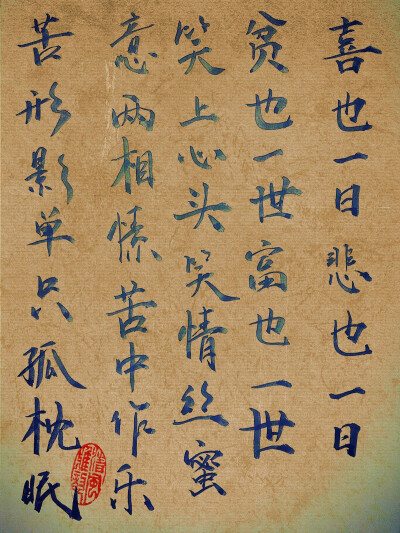 喜也一日悲也一日
贫也一世富也一世
笑上心头笑情丝蜜
意两相愫苦中作乐
苦形影单只孤枕眠